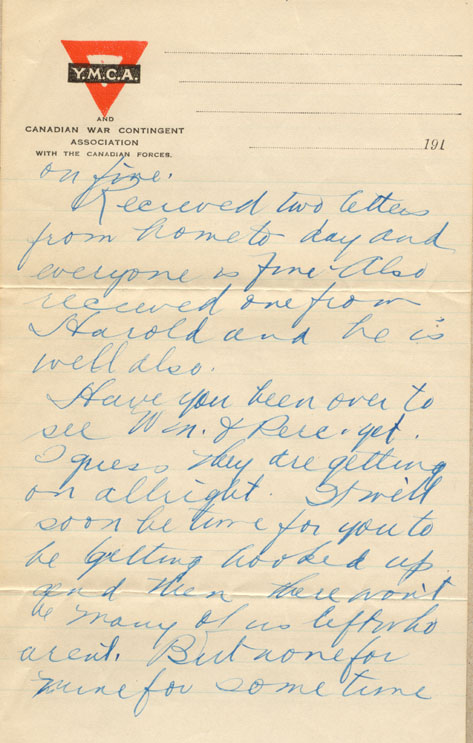 Y.M.C.A.
AND
CANADIAN WAR CONTINGENT
ASSOCIATION
WITH THE CANADIAN FORCES.
191
on fine.
Recieved two letters
from home to day and
everyone is fine. Also
received one from
Harold and he is
well also.
Have you been over to
see Wm. & Perc. yet.
I guess they are getting
on allright. It will
soon be time for you to
be getting hooked up
and then there won't
be many of us left who
aren't. But none for
mine for some time